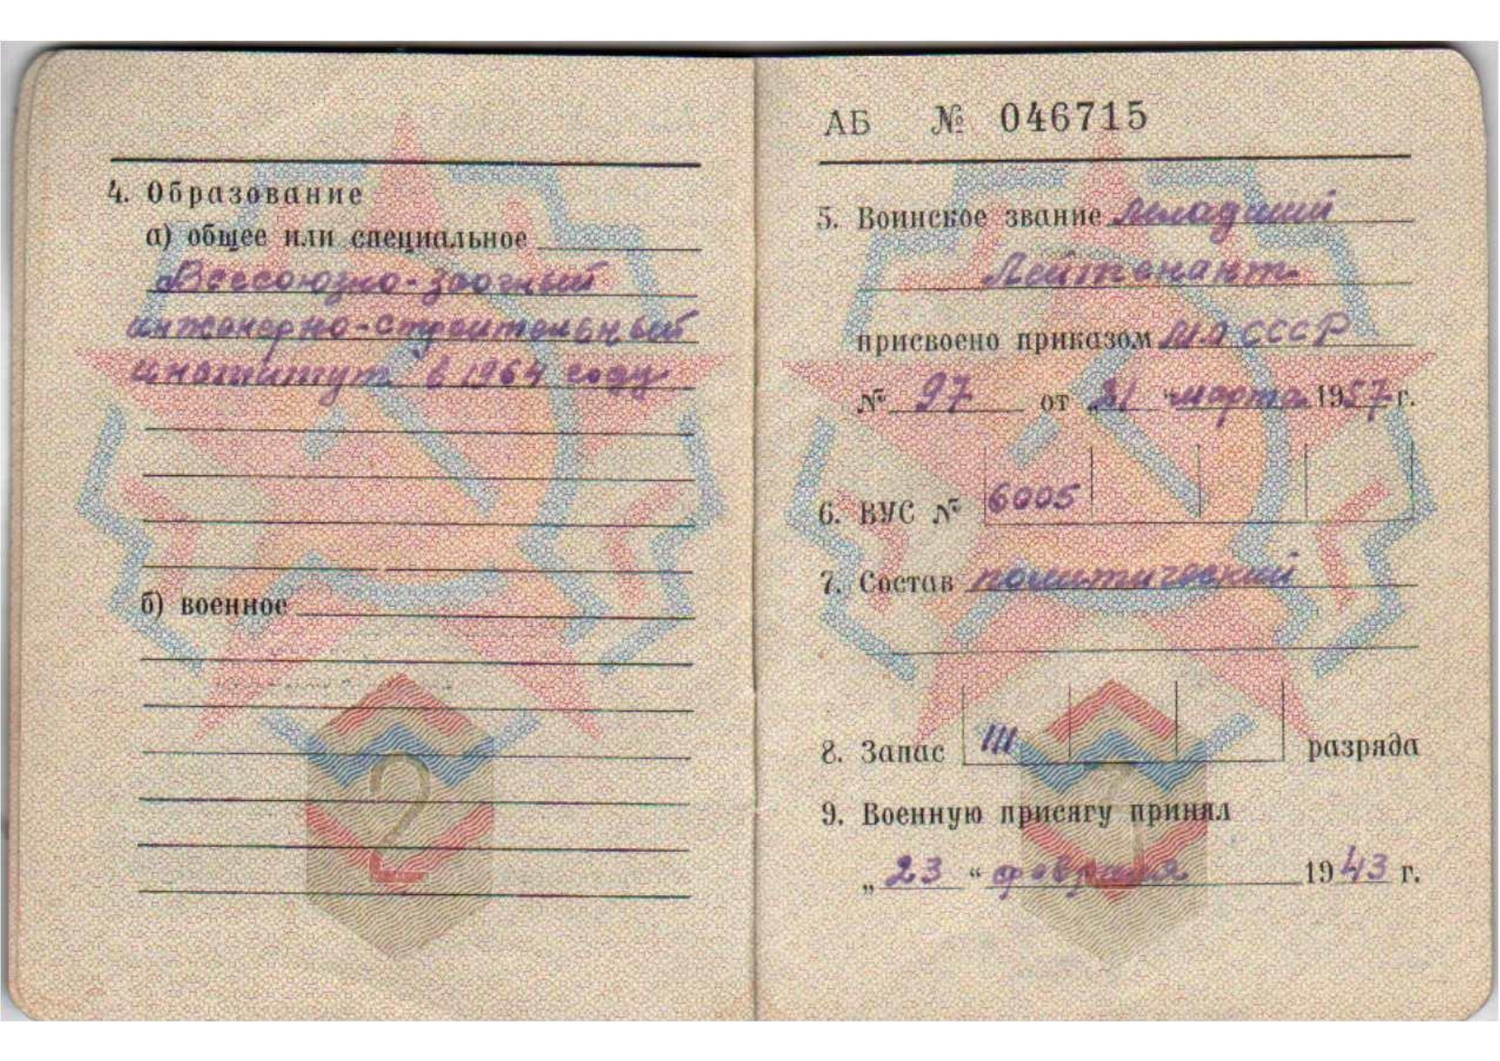 4. Образование
а) общее или специальное
Всесоюзно-заочный
инженерно-строительный
институт в 1964 году
б) военное
2
АБ № 046715
5. Воинское звание младший
Лейтенант
присвоено приказом МО СССР
№ 97 от „21“ марта 1957 г.
6. ВУС № 6005
7. Состав политический
8. Запас III разряда
9. Военную присягу принял
„23“ февраля 1943 г.